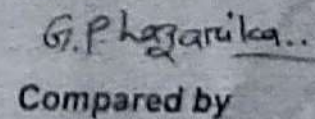 G.P. Hazarika..
Compared by